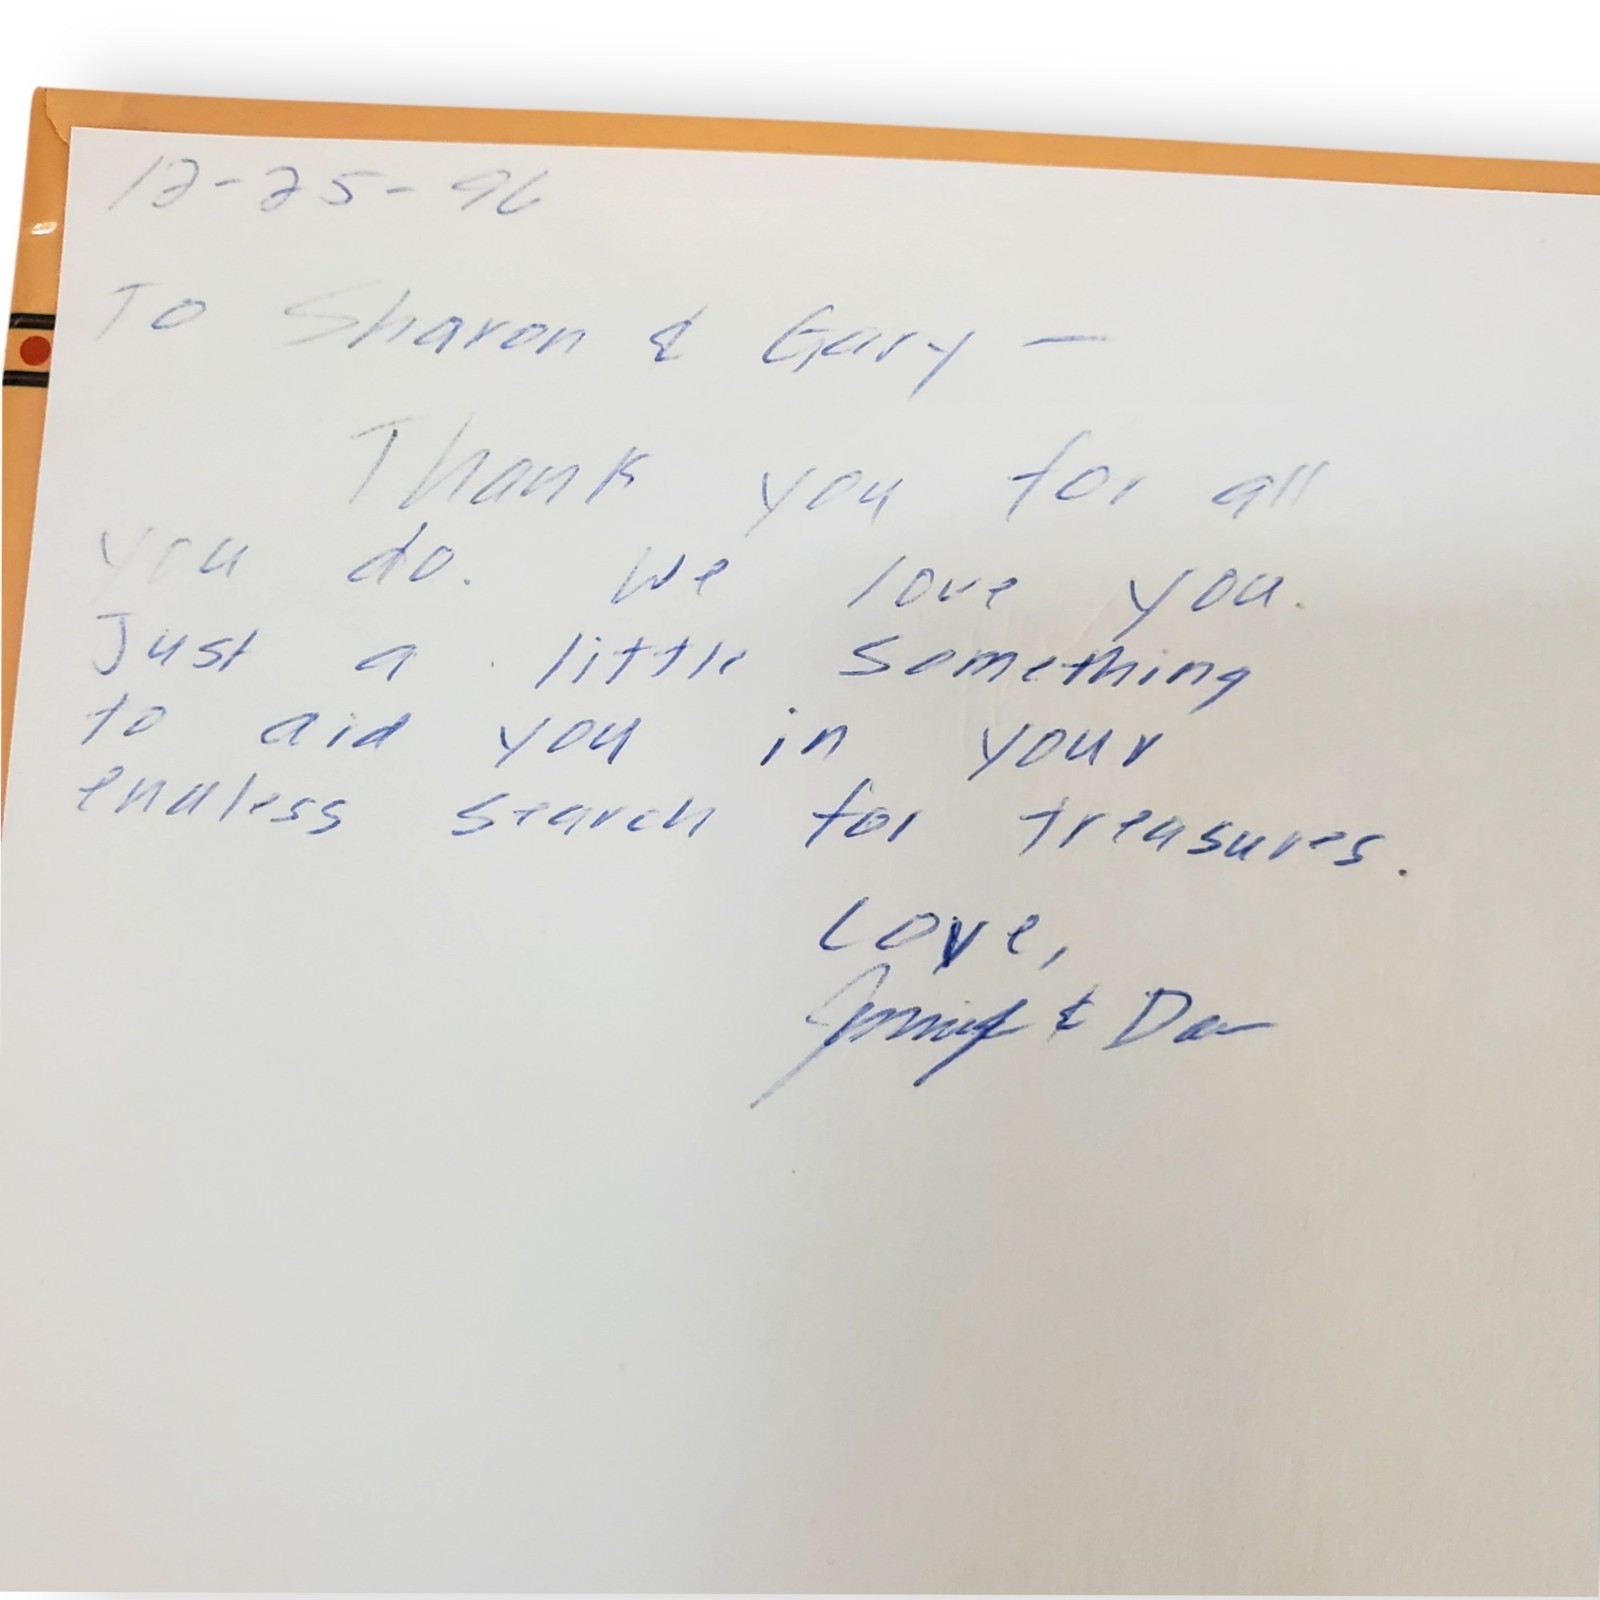 12-25-96
To Sharon & Gary —
Thank you for all
you do. We love you.
Just a little something
to aid you in your
endless search for treasures.
Love,
& Da